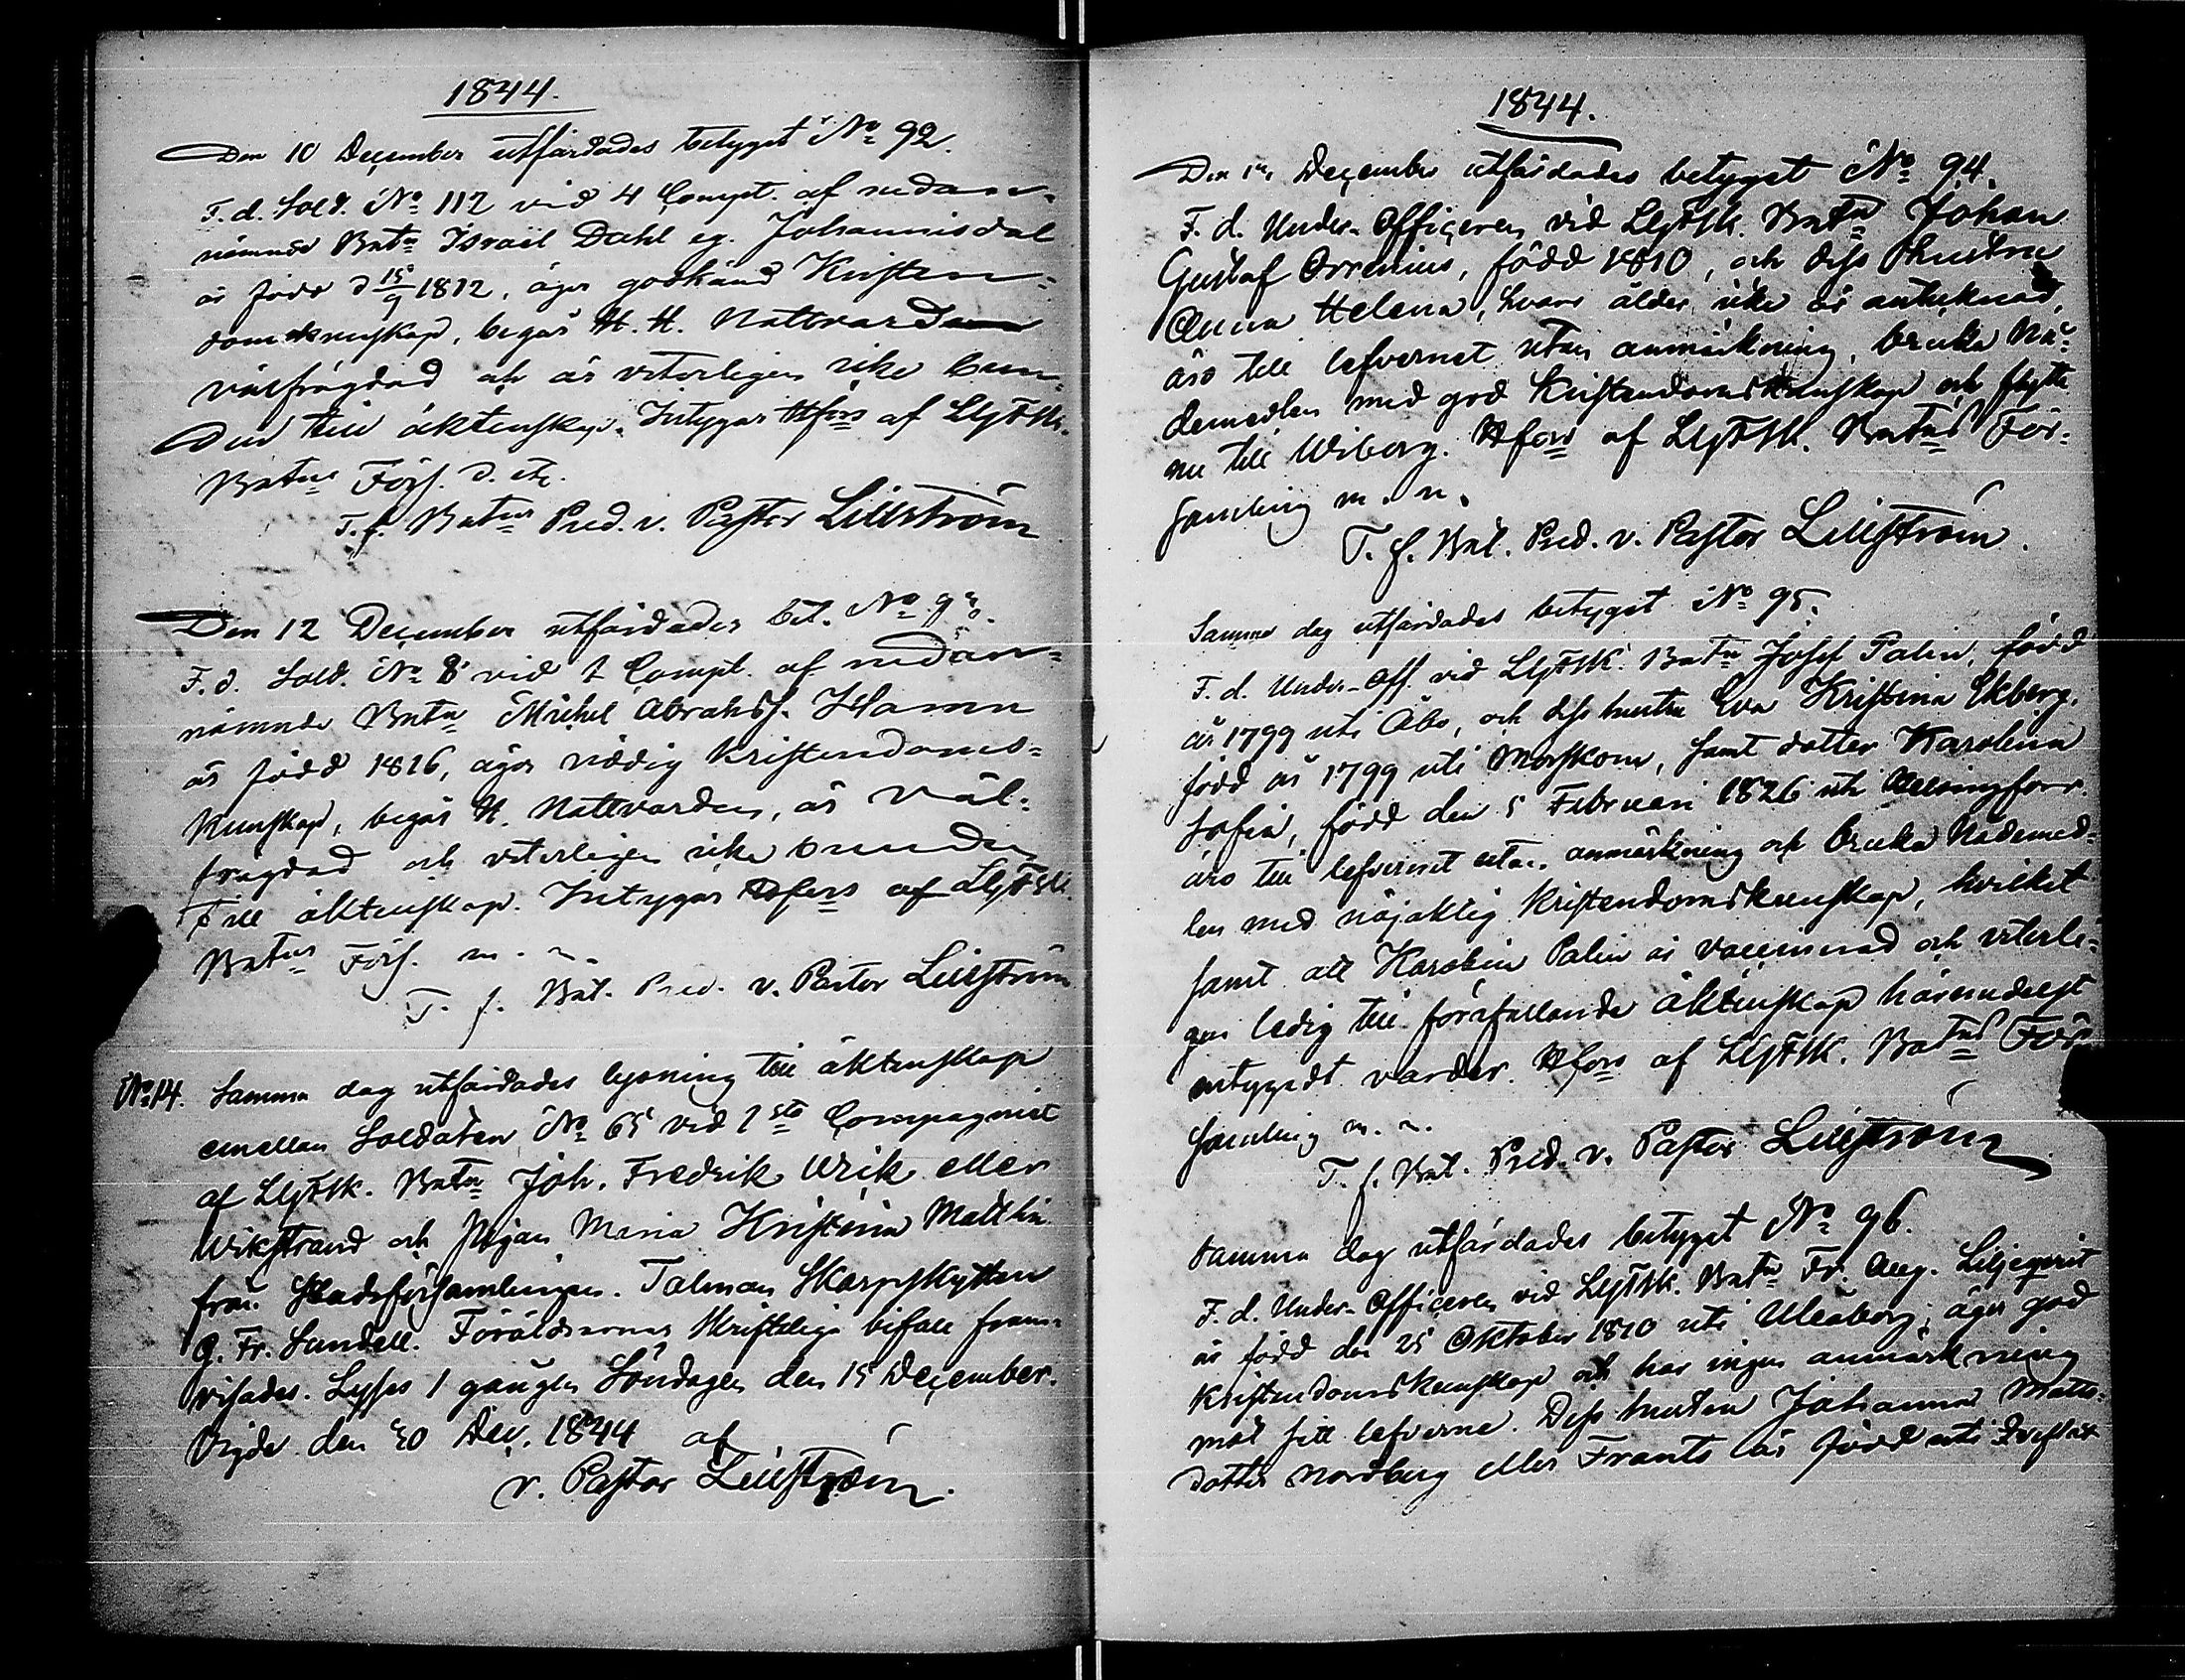 1844.
Den 10 December utfärdades betyget No 92.
F. d. Sold. No 112 vid 4 Compt. af nedan-
nämnde Batn Israel Dahl eg. Johannisdal
är född d 15/9 1812, äger godkänd Kristen-
domskunskap, begår H. H. Nattvarden
välfrägdad och är veterligen icke bun-
den till äktenskap. Intygar Hfors af LLgFSk.
Batns Förs. d. etc.
T. f. Batns Pred. v. Pastor Lillström
Den 12 December utfärdades bet. No 93.
F. d. Sold. No 8 vid 1 Compt. af nedan-
nämnde Batn Michel Abrahsf. Hamn
är född 1816, äger nödig Kristendoms-
kunskap, begår H. Nattvarden, är väl-
frägdad och veterligen icke bunden
till äktenskap. Intygar Hfors af LLgFSk.
Batns Förs. m. n.
T. f. Bat. Pred. v. Pastor Lillström
No 14. Samma dag utfärdades lysning till äktenskap
emellan Soldaten No 65 vid 1sta Compagniet
af LLgFSk. Batn Joh. Fredrik Wik eller
Wikstrand och Pigan Maria Kristina Mattlin
från Stadsförsamlingen. Talman Skarpskytten
G. Fr. Sandell. Föräldrarnas skriftliga bifall fram-
visades. Lyses 1 gången Söndagen den 15 December.
Vigde den 30 Dec. 1844 af
v. Pastor Lillström.
1844.
Den December utfärdades betyget No 94.
F. d. Under-Officeren vid LLgFSk. Batn Johan
Gustaf Orrenius, född 1810, och dess Hustru
Anna Helena, hvars ålder icke är antecknad,
äro till lefvernet utan anmärkning, bruka Nå-
demedlen med god Kristendomskunskap och flytta
nu till Wiborg. Hfors af LLgFSk. Batns För-
samling m. n.
T. f. Bat. Pred. v. Pastor Lillström.
Samma dag utfärdades betyget No 95.
F. d. Under-Off. vid LLgFSk. Batn Josef Palin, född
år 1799 uti Åbo, och dess hustru Eva Kristina Ekberg,
född år 1799 uti Morskom, samt dotter Karolina
Sofia, född den 5 Februari 1826 uti Helsingfors
äro till lefvernet utan anmärkning och bruka Nådemed-
len med nöjaktig Kristendomskunskap, hvilket
samt att Karolin Palin är vaccinerad och veterli-
gen ledig till förefallande äktenskap härmedelst
intygadt varder. Hfors af LLgFSk. Batns För-
samling m. n.
T. f. Bat. Pred. v. Pastor Lillström
Samma dag utfärdades betyget No 96.
F. d. Under-Officeren vid LLgFSk. Batn Fr. Aug. Liljeqvist
är född den 25 Oktober 1810 uti Uleåborg, äger god
Kristendomskunskap och har ingen anmärkning
mot sitt lefverne. Dess hustru Johanna Matts-
dotter Nordberg eller Frants är född uti